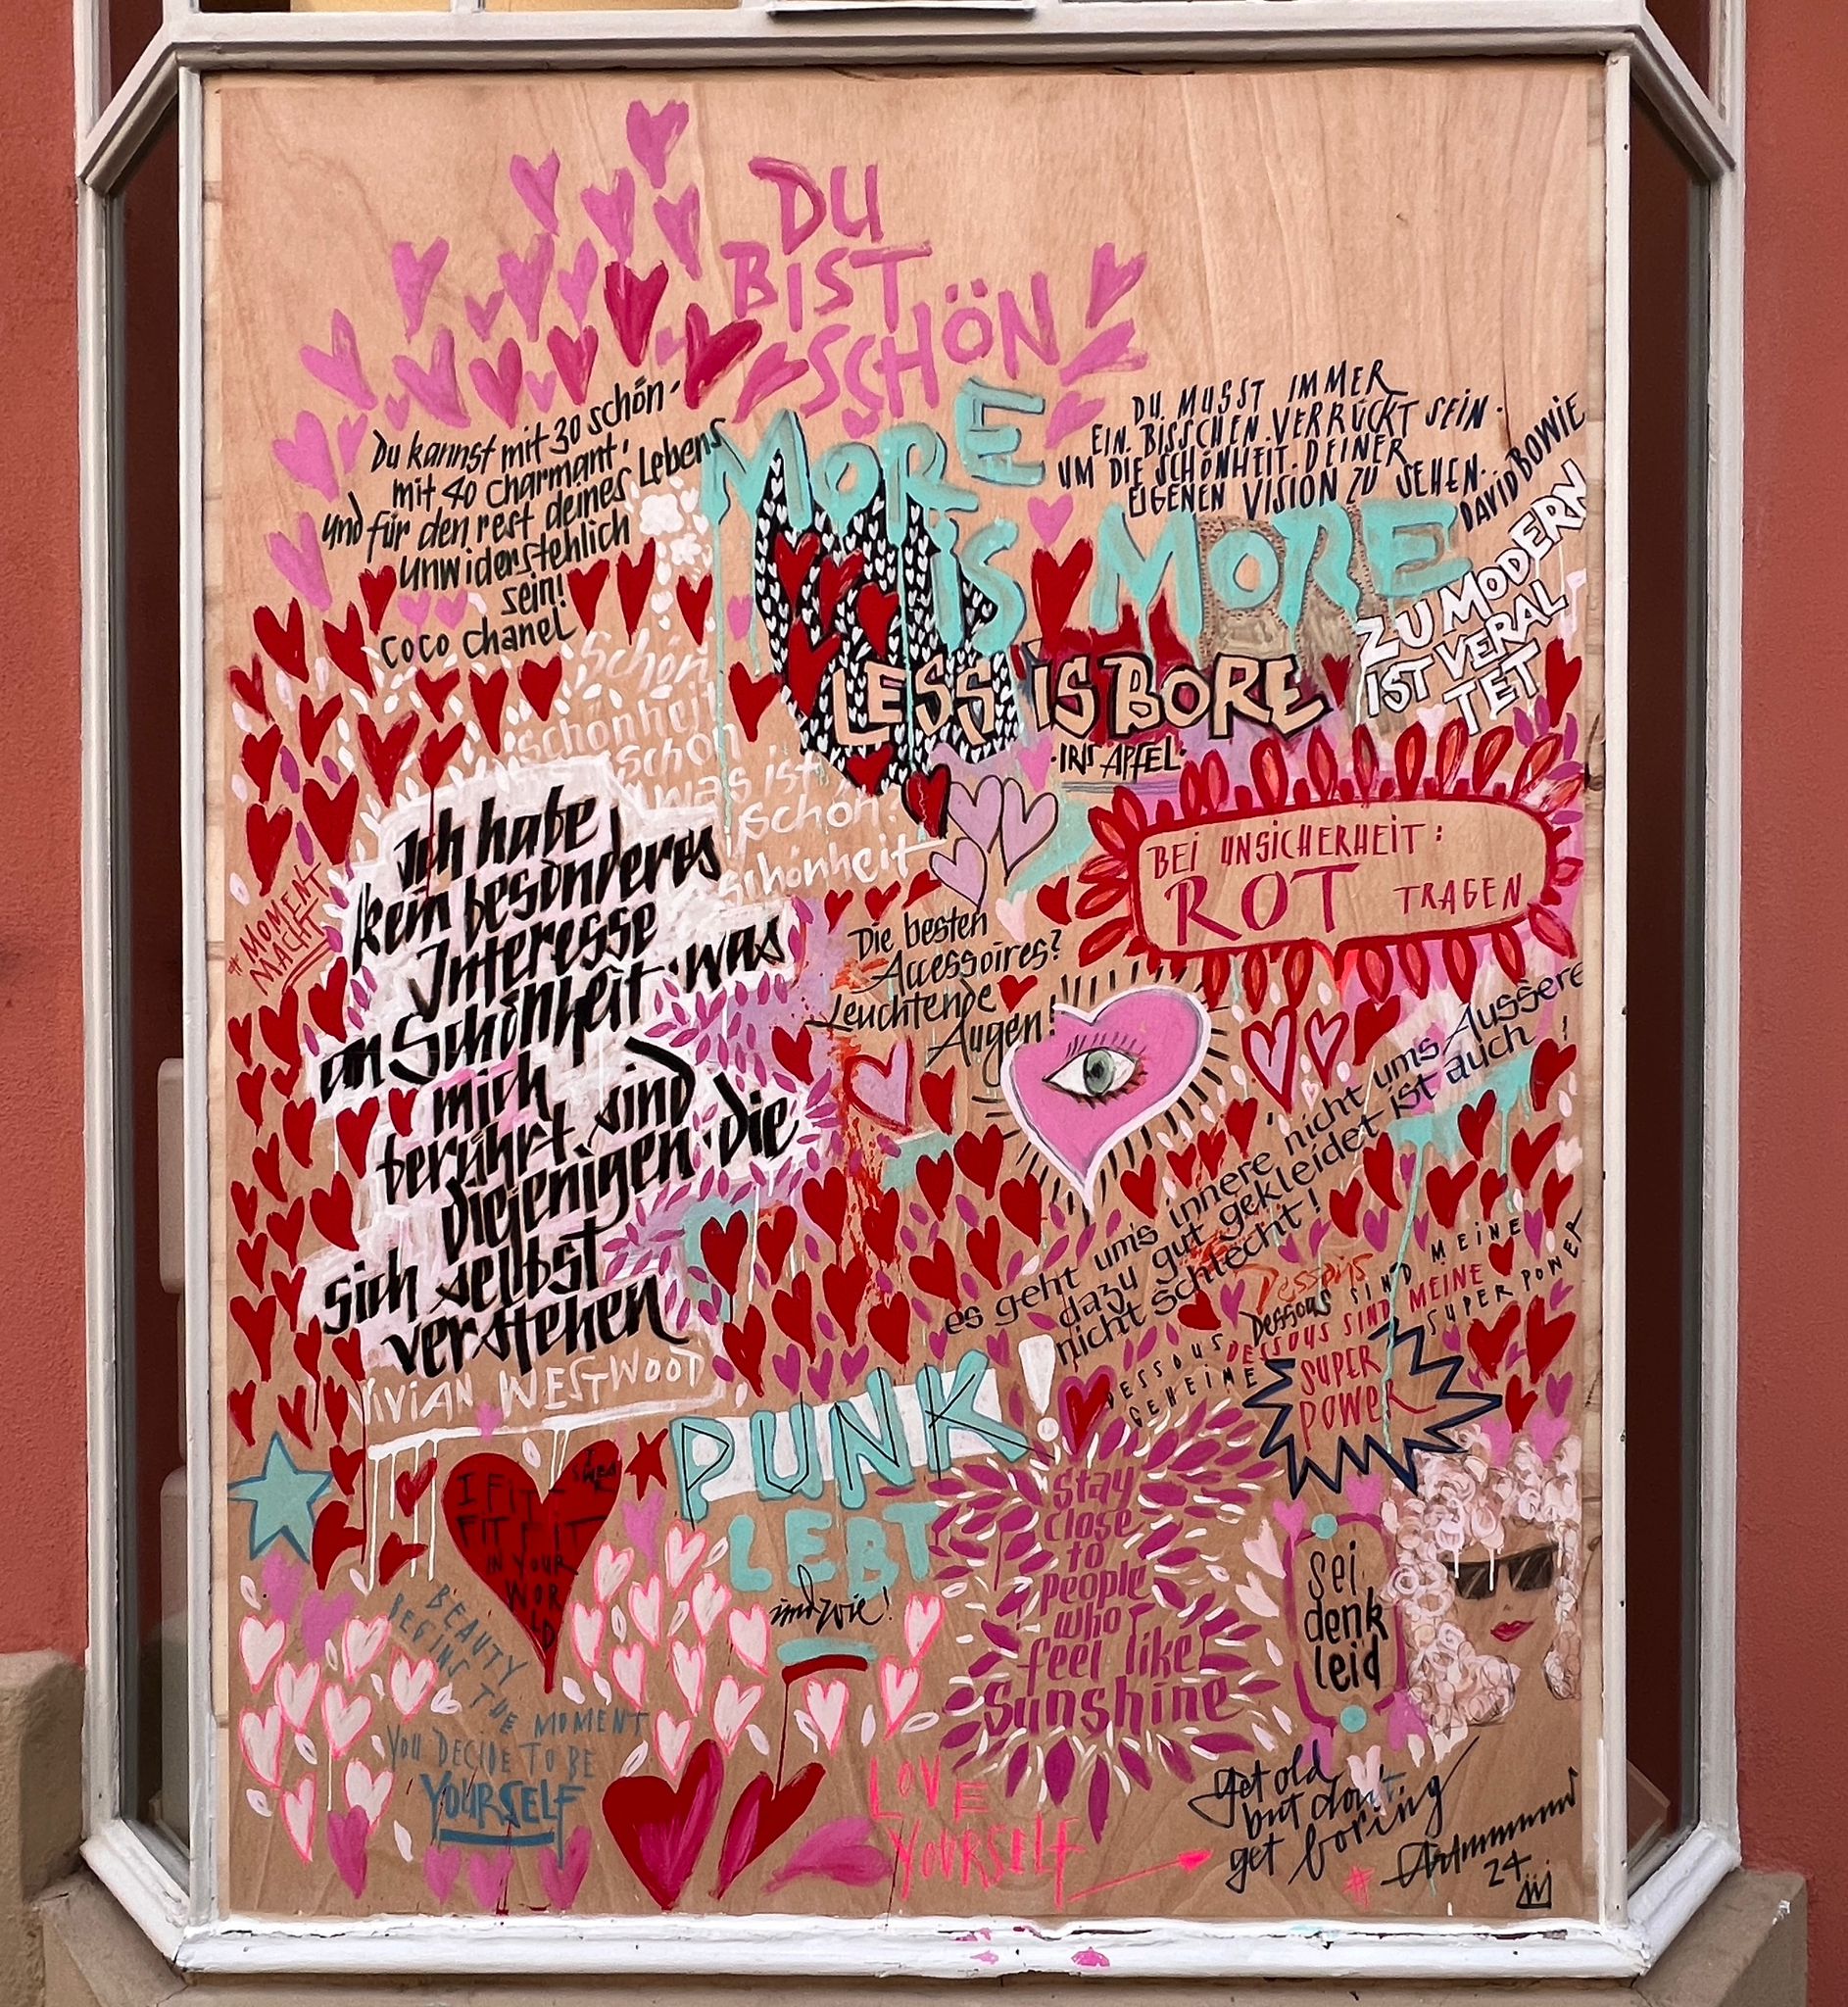 DU
BIST
SCHÖN
Du kannst mit 30 schön,
mit 40 charmant,
und für den rest deines Lebens
unwiderstehlich
sein!
coco chanel
MORE
IS MORE
LESS IS BORE
·IRIS APFEL·
DU MUSST IMMER
EIN.BISSCHEN.VERRÜCKT SEIN·
UM DIE SCHÖNHEIT.DEINER
EIGENEN VISION ZU SEHEN..
DAVID BOWIE
ZU MODERN
IST VERAL
TET
Schön
schönheit
schön
was ist
schön?
schönheit
# MOMENT
MACHT
Ich habe
kein besonderes
Interesse
an Schönheit·was
mich
berührt sind
diejenigen·die
sich selbst
verstehen
VIVIAN WESTWOOD
BEI UNSICHERHEIT:
ROT TRAGEN
Die besten
Accessoires?
Leuchtende
Augen!
es geht um's innere nicht ums Äussere
dazu gut gekleidet ist auch
nicht schlecht!
!
Dessous
DESSOUS SIND MEINE
DESSOUS SIND MEINE
SUPER
POWER
DESSOUS
GEHEIME
SUPER POWER
PUNK!
LEBT
und wie!
I FIT
IN YOUR
WOR
LD
BEAUTY
BEGINS THE MOMENT
YOU DECIDE TO BE
YOURSELF
Stay
close
to
people
who
feel like
Sunshine
sei
denk
leid
LOVE
YOURSELF
get old
but don't
get boring
#
24